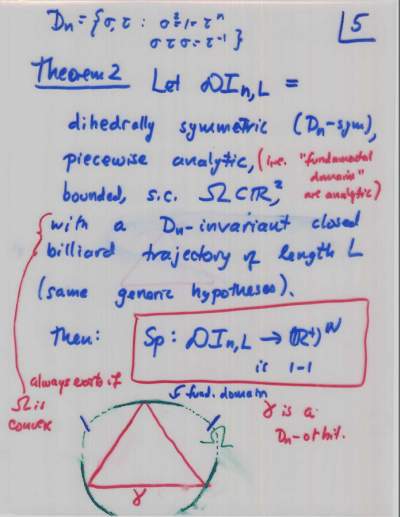 Dn = {σ, τ : σ² = 1 = τⁿ
σ τ σ = τ⁻¹}
5
Theorem 2 Let DI n,L =
dihedrally symmetric (Dn-sym),
piecewise analytic, (i.e. "fundamental
domains"
bounded, s.c. Ω ⊂ ℝ², are analytic)
with a Dn-invariant closed
billiard trajectory of length L
(same generic hypotheses).
Then: Sp : DI n,L → (ℝ⁺)^ℕ
is 1-1
always exists if
Ω is
convex
fund. domain
γ is a
Dn-orbit.
Ω
γ